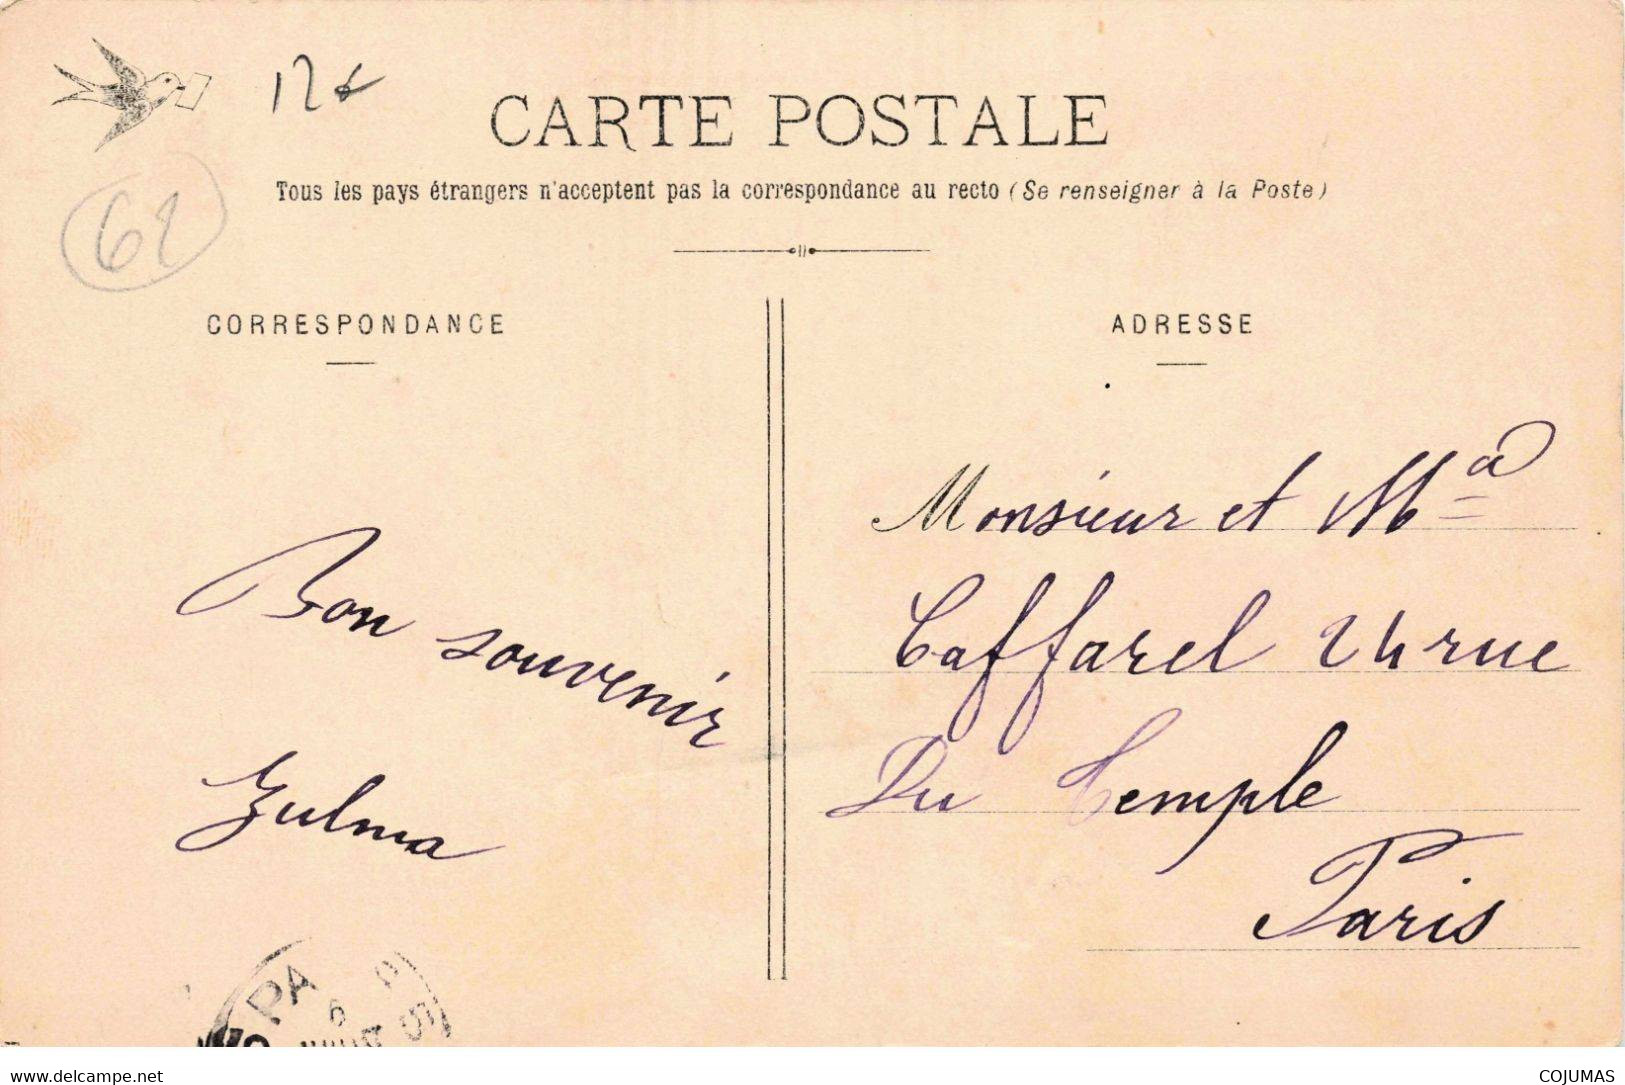 12€
CARTE POSTALE
Tous les pays étrangers n'acceptent pas la correspondance au recto (Se renseigner à la Poste)
62
CORRESPONDANCE
ADRESSE
Monsieur et Ma
Caffarel 24 rue
Du Temple
Paris
Bon souvenir
Zulma
PA
www.delcampe.net
COJUMAS